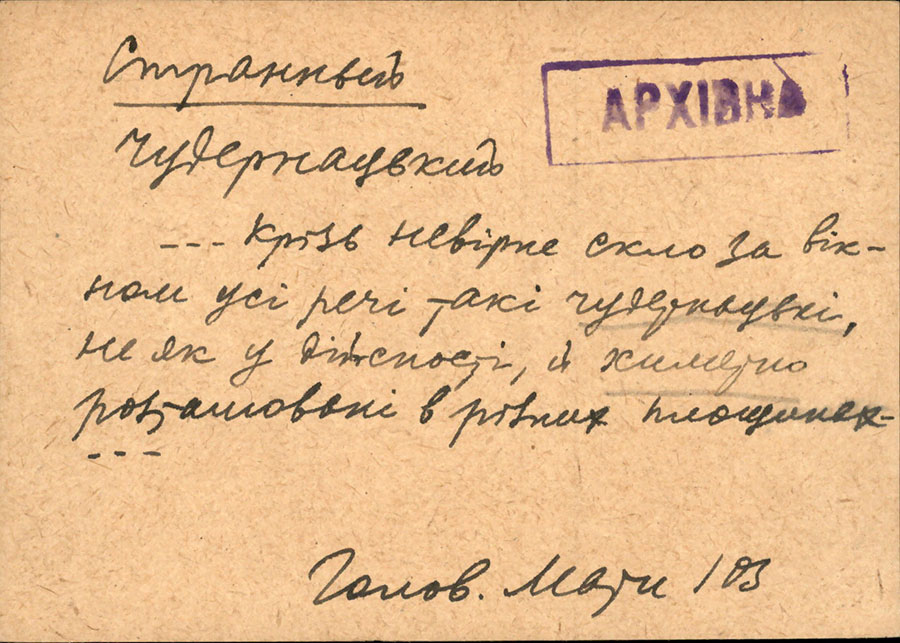 Странный
АРХІВНА
Чудернацький
--- Крізь невірне скло за вік-
ном усі речі такі чудернацькі,
не як у дійсності, й химерно
розташовані в різних площинах-
---
Голов. Мати 103